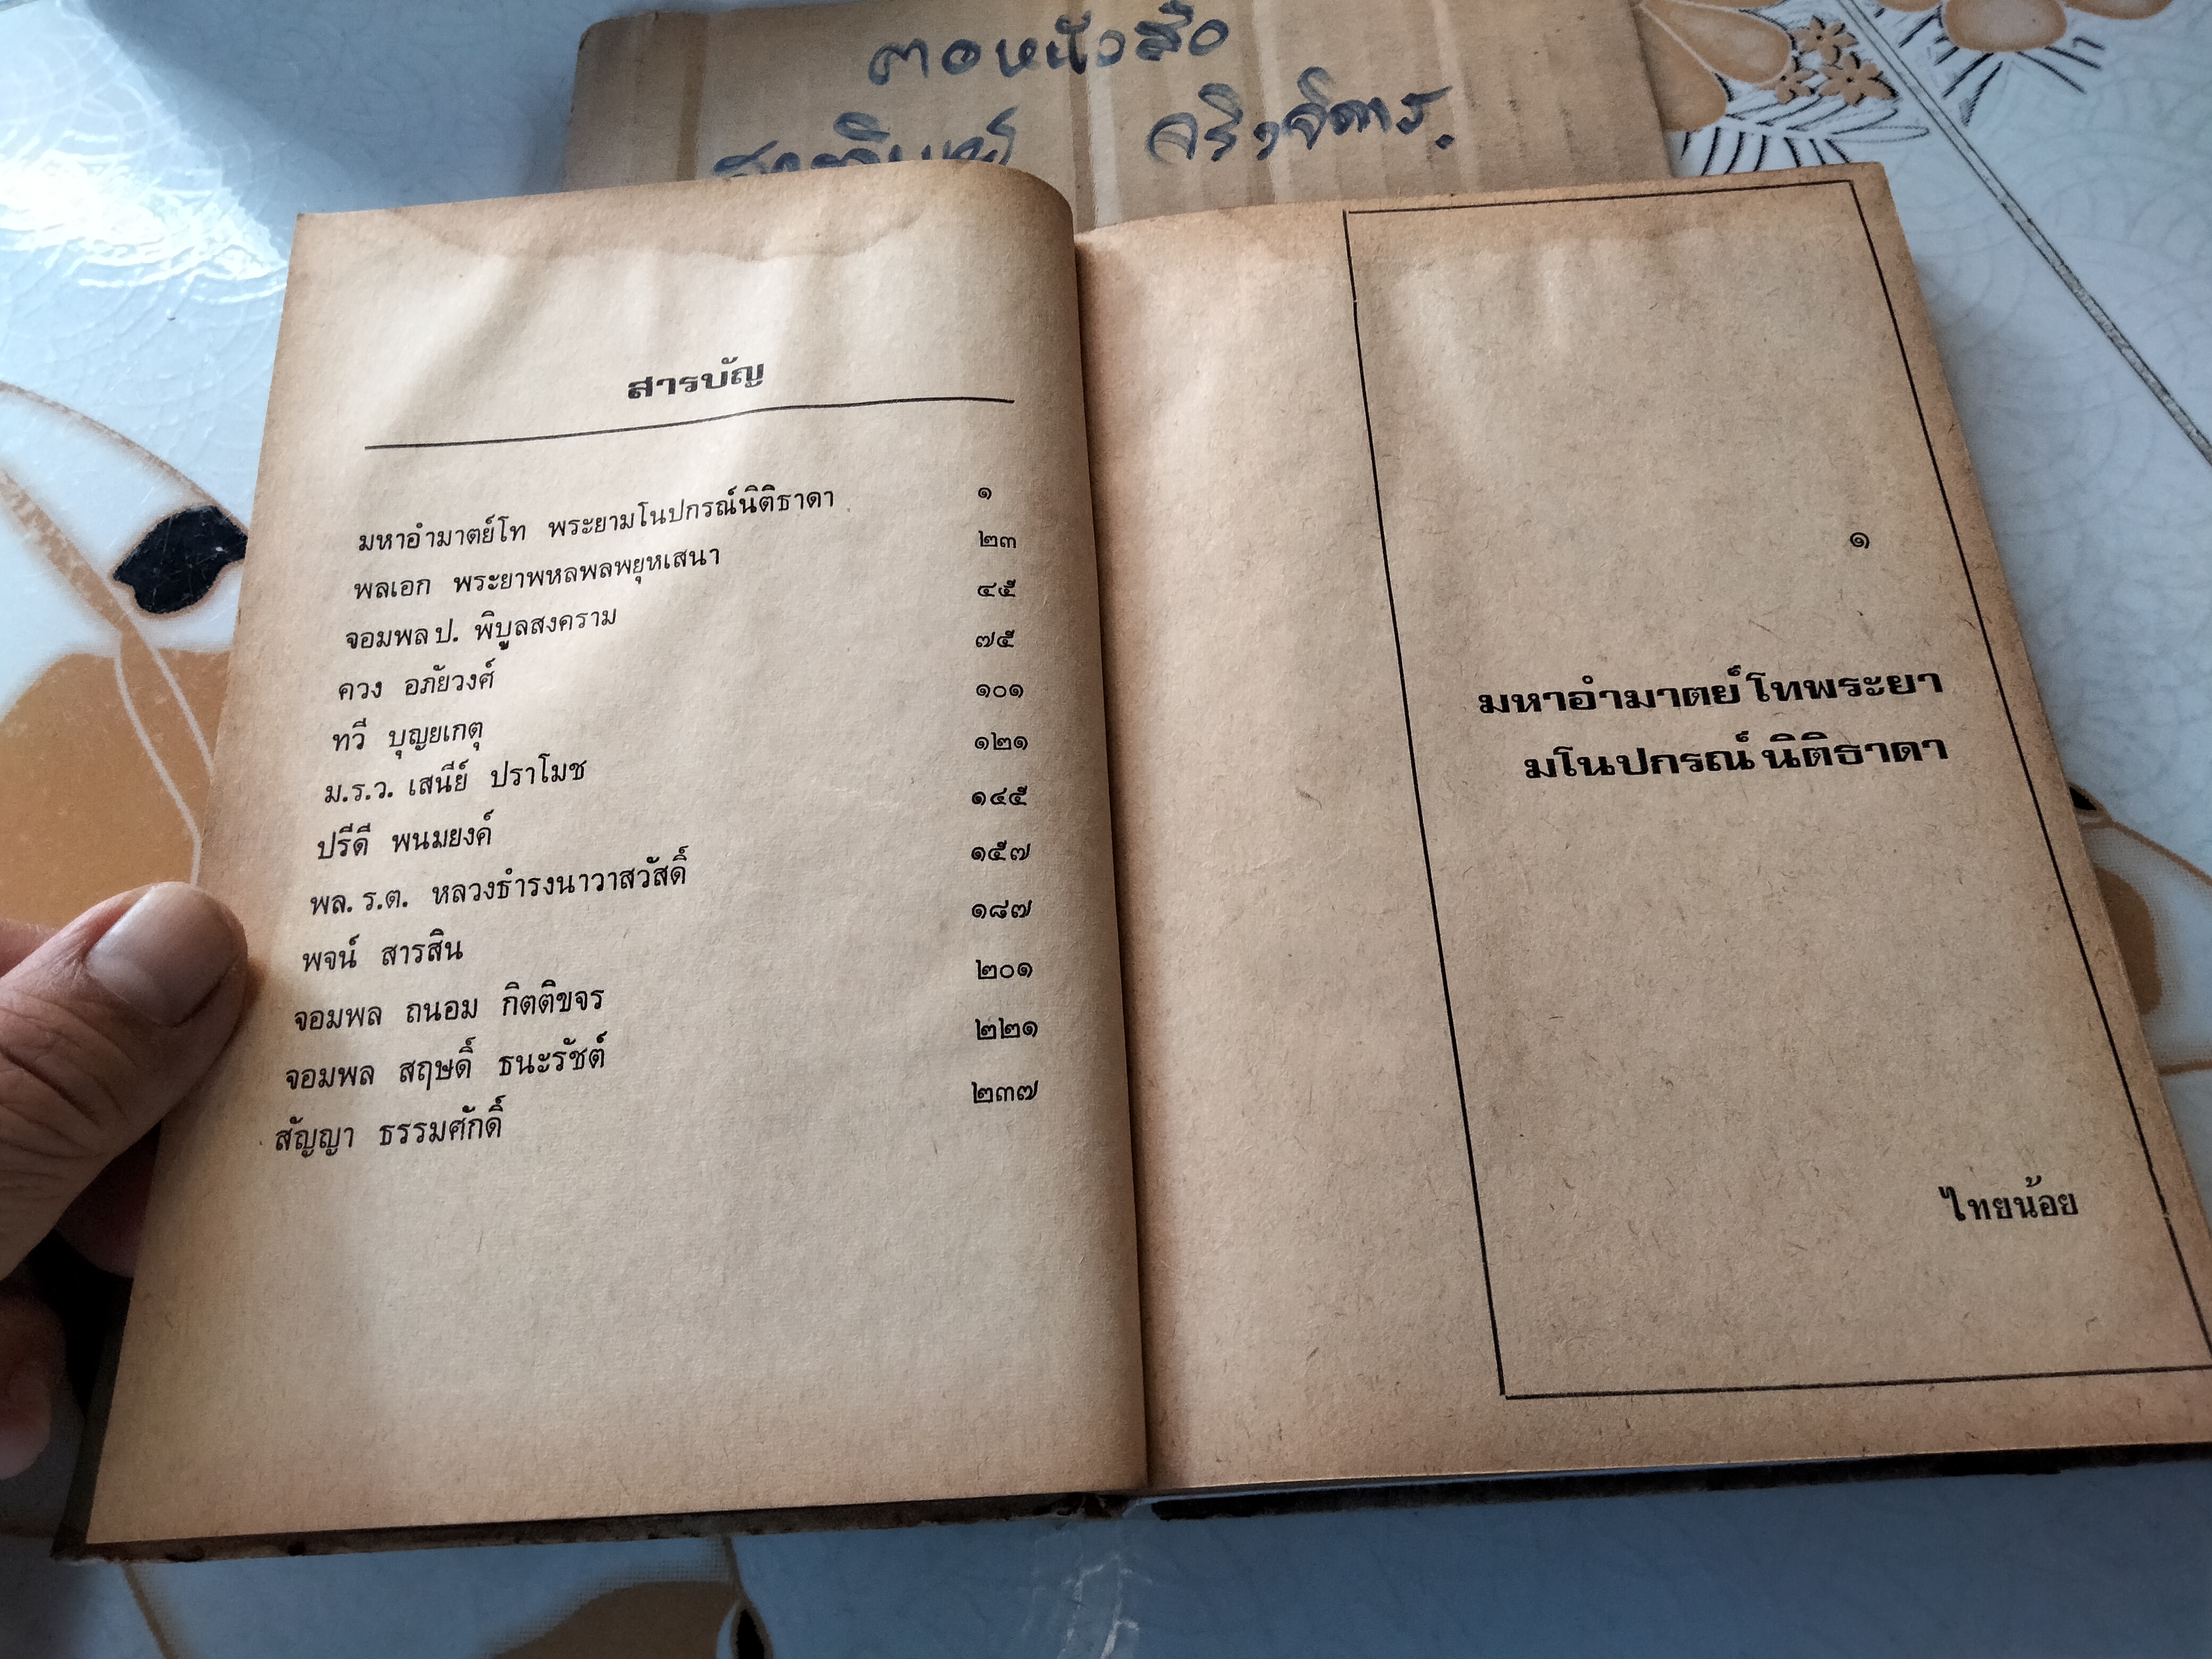 ตอหนังสือ
สารบัญ
มหาอำมาตย์โท พระยามโนปกรณ์นิติธาดา ๑
พลเอก พระยาพหลพลพยุหเสนา ๒๓
จอมพล ป. พิบูลสงคราม ๔๕
ควง อภัยวงศ์ ๗๕
ทวี บุญยเกตุ ๑๐๑
ม.ร.ว. เสนีย์ ปราโมช ๑๒๑
ปรีดี พนมยงค์ ๑๔๕
พล. ร.ต. หลวงธำรงนาวาสวัสดิ์ ๑๕๗
พจน์ สารสิน ๑๘๗
จอมพล ถนอม กิตติขจร ๒๐๑
จอมพล สฤษดิ์ ธนะรัชต์ ๒๒๑
สัญญา ธรรมศักดิ์ ๒๓๗
๑
มหาอำมาตย์โทพระยา
มโนปกรณ์นิติธาดา
ไทยน้อย